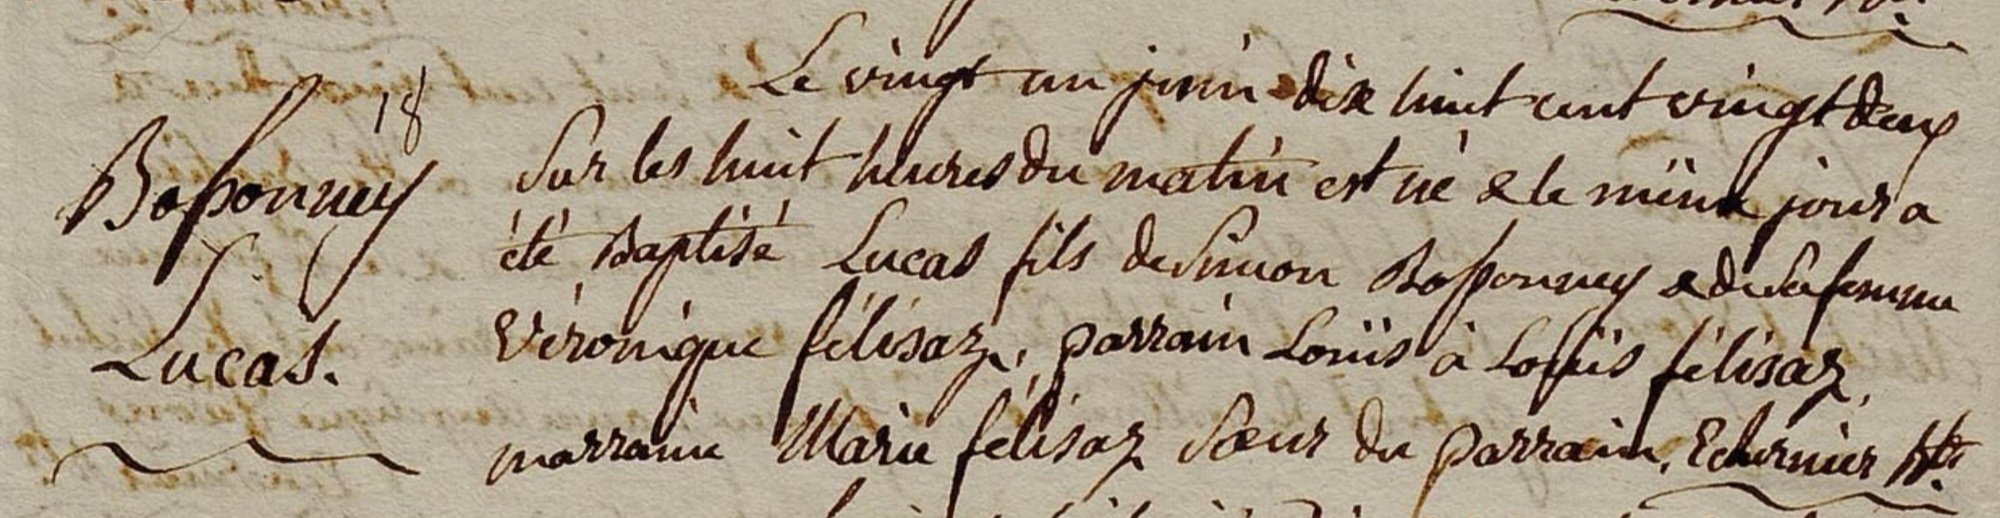 18
Bossonney
Lucas.
Le vingt un juin dix huit cent vingt deux
sur les huit heures du matin est né & le même jour a
été Baptisé Lucas fils de Simon Bossonney & de sa femme
Véronique félisaz, parrain Loüis à Loüis félisaz,
marraine Marie félisaz Sœur du parrain.